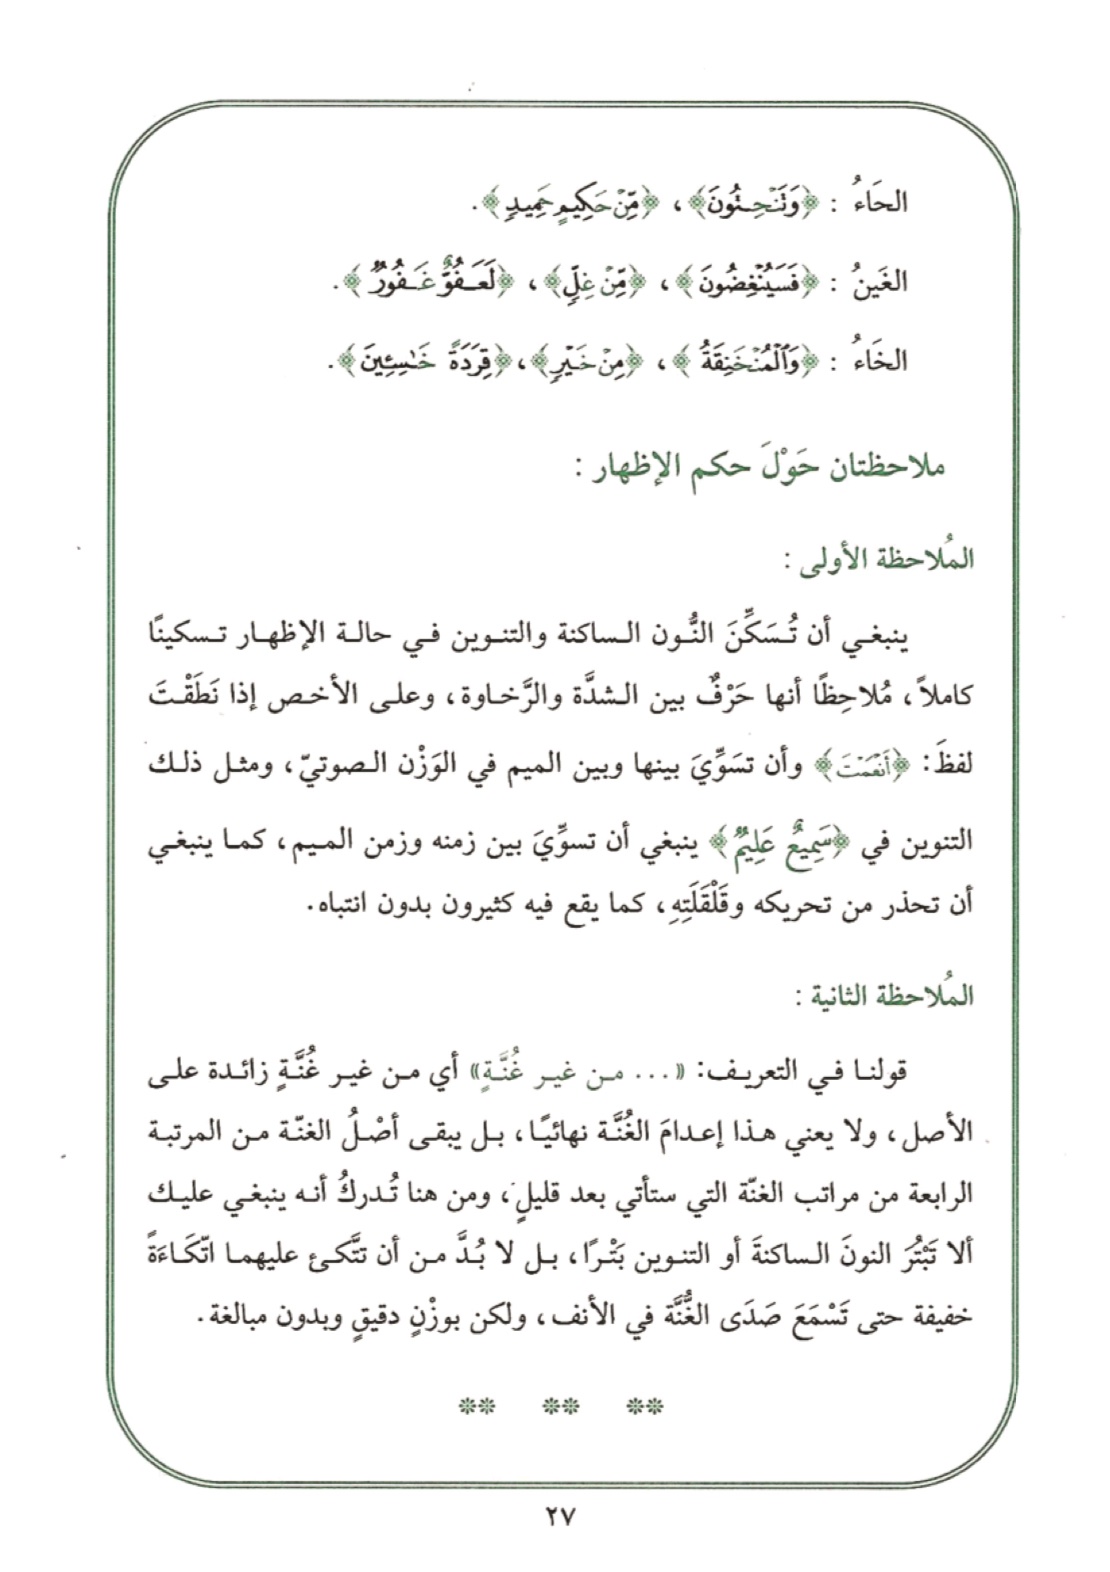 الحَاءُ : ﴿وَتَنْحِتُونَ﴾، ﴿مِّنْ حَكِيمٍ حَمِيدٍ﴾.
الغَينُ : ﴿فَسَيُنْغِضُونَ﴾، ﴿مِّنْ غِلٍّ﴾، ﴿لَعَفُوٌّ غَفُورٌ﴾.
الخَاءُ : ﴿وَٱلْمُنْخَنِقَةُ﴾، ﴿مِنْ خَيْرٍ﴾، ﴿قِرَدَةً خَٰسِئِينَ﴾.
ملاحظتان حَوْلَ حكم الإظهار :
المُلاحظة الأولى :
ينبغي أن تُسَكِّنَ النُّون الساكنة والتنوين في حالة الإظهار تسكينًا
كاملاً، مُلاحِظًا أنها حَرْفٌ بين الشدَّة والرَّخاوة، وعلى الأخص إذا نَطَقْتَ
لفظَ: ﴿أَنْعَمْتَ﴾ وأن تسَوِّيَ بينها وبين الميم في الوَزْن الصوتيّ، ومثل ذلك
التنوين في ﴿سَمِيعٌ عَلِيمٌ﴾ ينبغي أن تسوِّيَ بين زمنه وزمن الميم، كما ينبغي
أن تحذر من تحريكه وقَلْقَلَتِهِ، كما يقع فيه كثيرون بدون انتباه.
المُلاحظة الثانية :
قولنا في التعريف: «... من غير غُنَّةٍ» أي من غير غُنَّةٍ زائدة على
الأصل، ولا يعني هذا إعدامَ الغُنَّة نهائيًا، بل يبقى أصْلُ الغنّة من المرتبة
الرابعة من مراتب الغنّة التي ستأتي بعد قليلٍ، ومن هنا تُدركُ أنه ينبغي عليك
ألا تَبْتُرَ النونَ الساكنةَ أو التنوين بَتْرًا، بل لا بُدَّ من أن تتَّكئ عليهما اتّكَاءَةً
خفيفة حتى تَسْمَعَ صَدَى الغُنَّة في الأنف، ولكن بوزْنٍ دقيقٍ وبدون مبالغة.
٢٧